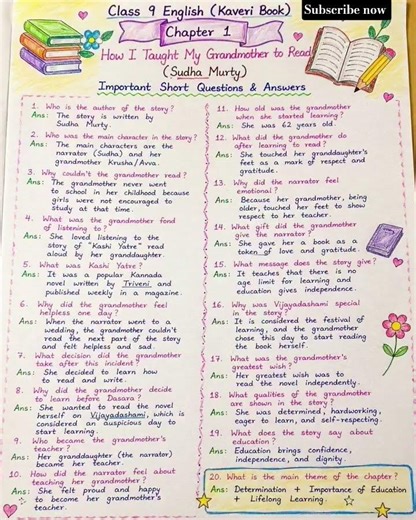 Subscribe now
Class 9 English (Kaveri Book)
Chapter 1
How I Taught My Grandmother to Read
(Sudha Murty)
Important Short Questions & Answers
1. Who is the author of the story?
Ans: The story is written by
Sudha Murty.
2. Who was the main character in the story?
Ans: The main characters are the
narrator (Sudha) and her
grandmother Krusha/Avva.
3. Why couldn't the grandmother read?
Ans: The grandmother never went
to school in her childhood because
girls were not encouraged to
study at that time.
4. What was the grandmother fond
of listening to?
Ans: She loved listening to the
story of "Kashi Yatre" read
aloud by her granddaughter.
5. What was Kashi Yatre?
Ans: It was a popular Kannada
novel written by Triveni and
published weekly in a magazine.
6. Why did the grandmother feel
helpless one day?
Ans: When the narrator went to a
wedding, the grandmother couldn't
read the next part of the story
and felt helpless and sad.
7. What decision did the grandmother
take after this incident?
Ans: She decided to learn how
to read and write.
8. Why did the grandmother decide
to learn before Dasara?
Ans: She wanted to read the novel
herself on Vijayadashami, which is
considered an auspicious day to
start learning.
9. Who became the grandmother's
teacher?
Ans: Her granddaughter (the narrator)
became her teacher.
10. How did the narrator feel about
teaching her grandmother?
Ans: She felt proud and happy
to become her grandmother's
teacher.
11. How old was the grandmother
when she started learning?
Ans: She was 62 years old.
12. What did the grandmother do
after learning to read?
Ans: She touched her granddaughter's
feet as a mark of respect and
gratitude.
13. Why did the narrator feel
emotional?
Ans: Because her grandmother, being
older, touched her feet to show
respect to her teacher.
14. What gift did the grandmother
give the narrator?
Ans: She gave her a book as a
token of love and gratitude.
15. What message does the story give?
Ans: It teaches that there is no
age limit for learning and
education gives independence.
16. Why was Vijayadashami special
in the story?
Ans: It is considered the festival of
learning, and the grandmother
chose this day to start reading
the book herself.
17. What was the grandmother's
greatest wish?
Ans: Her greatest wish was to
read the novel independently.
18. What qualities of the grandmother
are shown in the story?
Ans: She was determined, hardworking,
eager to learn, and self-respecting.
19. What does the story say about
education?
Ans: Education brings confidence,
independence, and dignity.
20. What is the main theme of the chapter?
Ans: Determination + Importance of Education
+ Lifelong Learning.